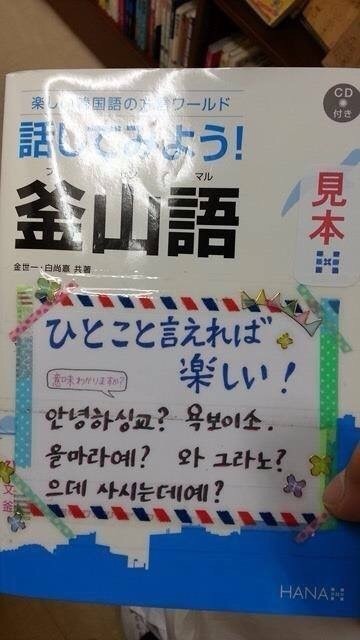 楽しい韓国語の方言ワールド
CD
付き
話してみよう!
プ サン マル
釜山語
見本
金世一・白尚憙 共著
ひとこと言えれば
楽しい!
意味わかりますか?
안녕하싱교? 욕보이소.
올마라예? 와 그라노?
으데 사시는데예?
文
釜
HANA